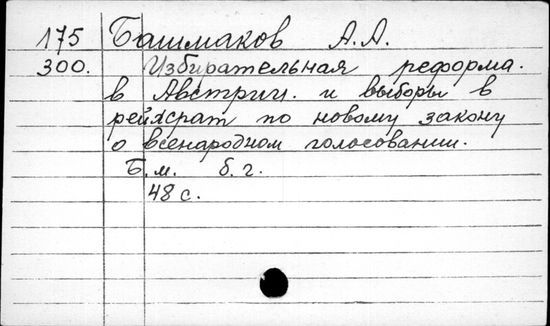 175 Башмаков А.А.
300. Избирательная реформа.
в Австрии. и выборы в
рейхсрат по новому закону
о всенародном голосовании.
Б.м. б.г.
48 с.